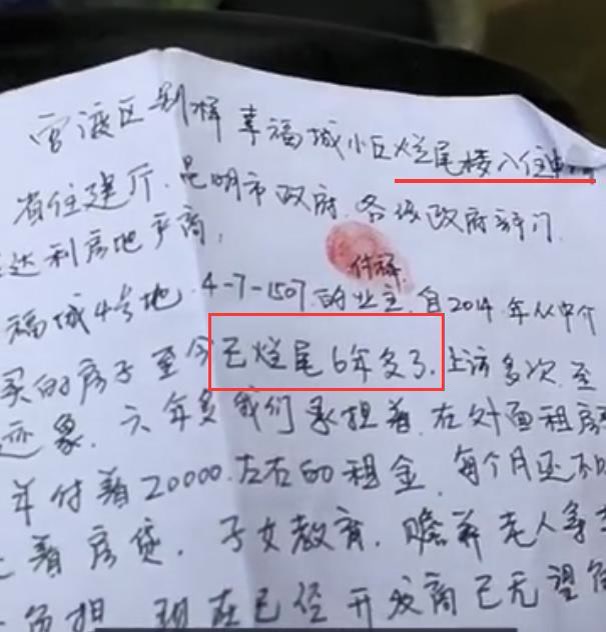 官渡区别样幸福城小区烂尾楼入住申
省住建厅.昆明市政府.各级政府部门.
达利房地产商,
福城4号地.4-7-1507.的业主.自2014年从中介
买的房子至今已烂尾6年多了.上访多次.至
迹象.六年多我们承担着.在外面租房
年付着20000.左右的租金.每个月还
着房贷.子女教育.赡养老人等
负担.现在已经开发商已无望